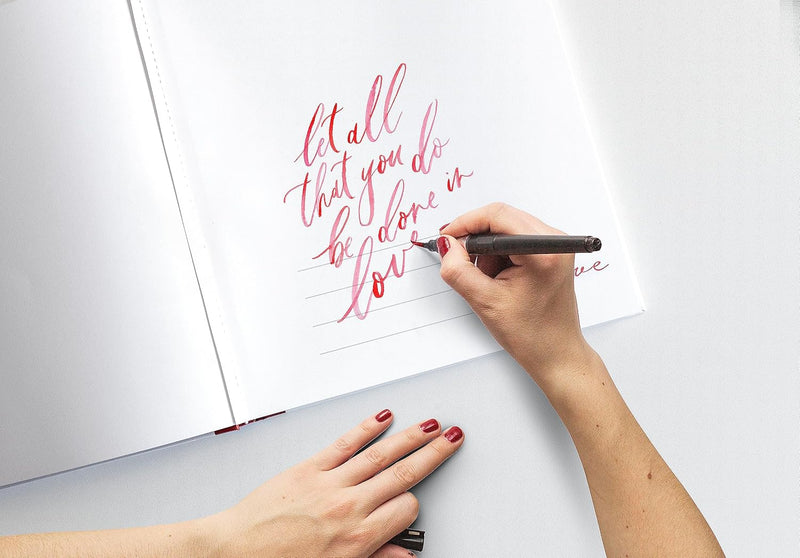 let all
that you do
be done in
lov